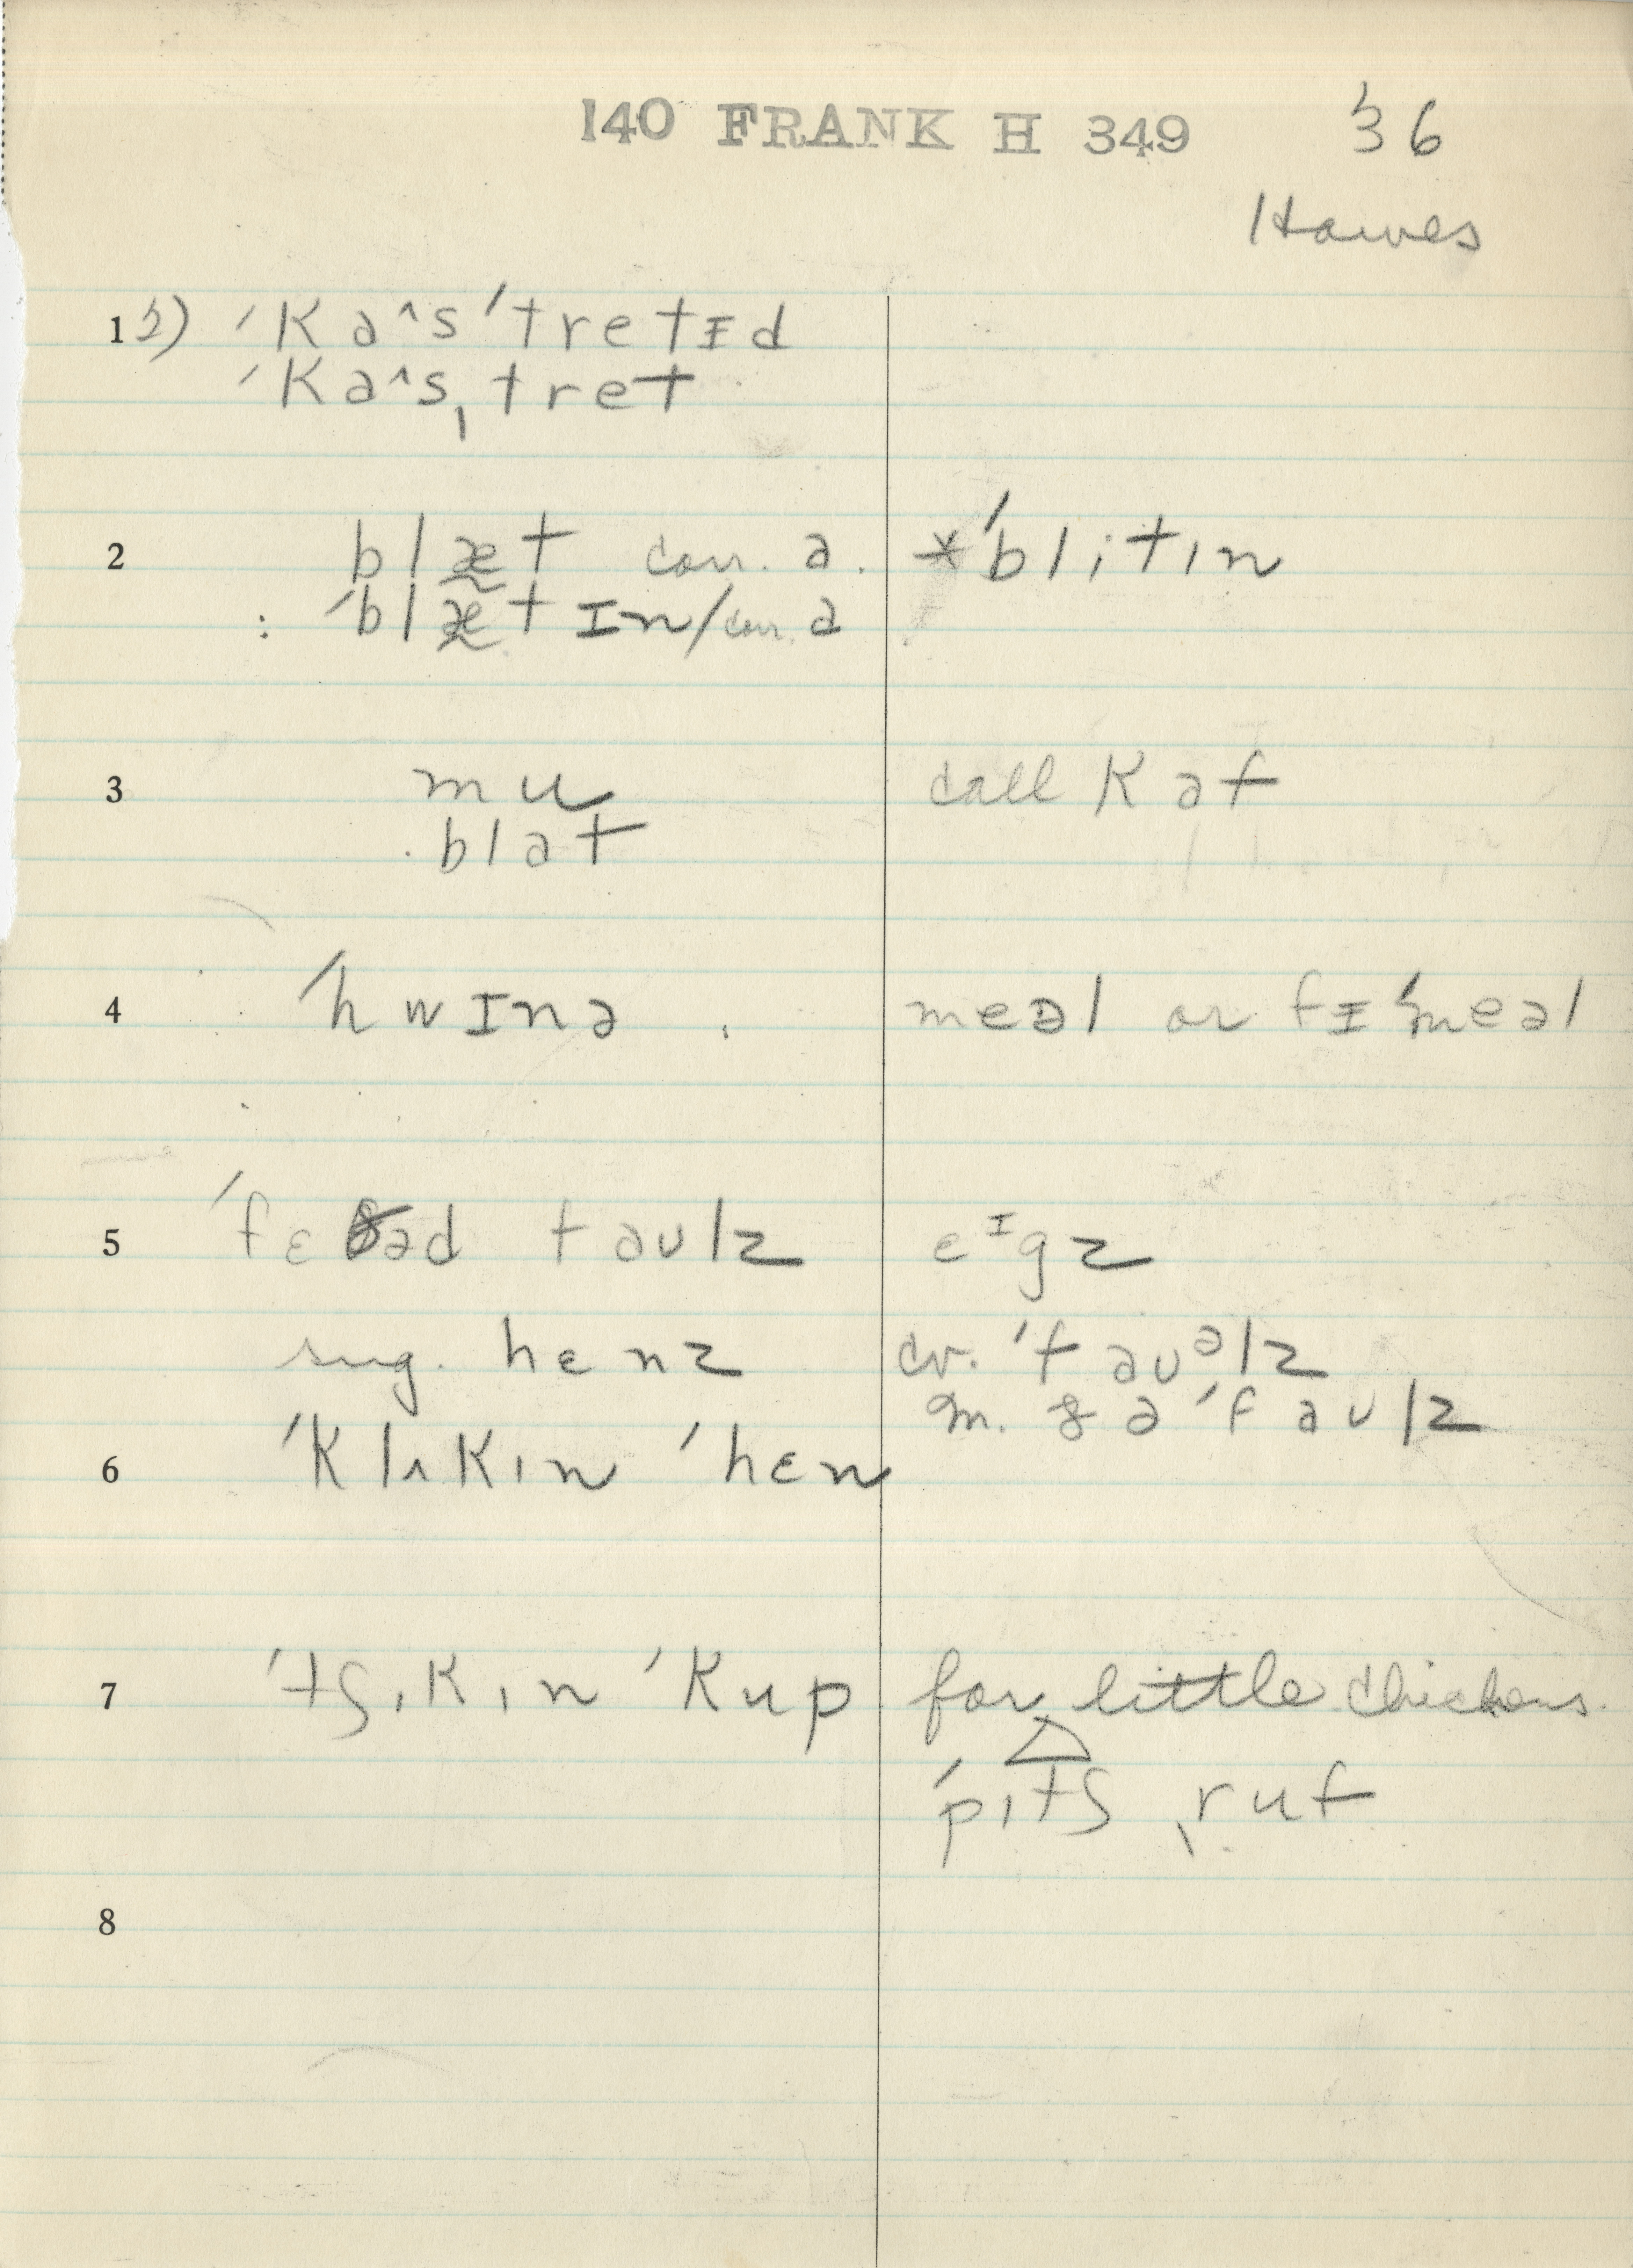 140 FRANK H 349 36
Hawes
1 2) ˈkaˆsˈtretɪd
ˈkaˆsˌtret
2 blæ̰t corr. a. *ˈblitɪn
: ˈblæ̰tɪn/corr. a
3 mu call kaf
.blat
4 ˈhwɪnə meəl or fɪˈmeəl
5 ˈfɛðəd faulz eᶦgz
sug. hɛnz cv. ˈfauᵊlz
m. ðə ˈfaulz
6 ˈklʌkɪn ˈhɛn
7 ˈtʃɪkɪn ˈkup for little chickens.
ˈpɪtʃ ˌruf
8